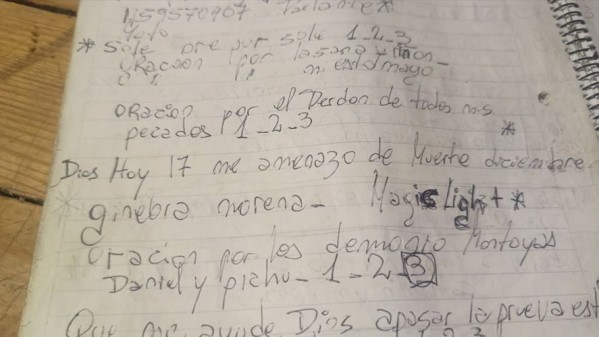 1159570907 Parlante *
* Sole ore por sole 1-2-3
ORacion por la sano y
mi estomago
ORacion por el Perdon de todos mis
pecados 1-2-3 *
Dios Hoy 17 me amenazo de Muerte diciembre
ginebra morena- Magic Light *
Oracion por los demonio Montoyas
Daniel y pichu- 1-2-3
Que me ayude Dios apasar la prueva est